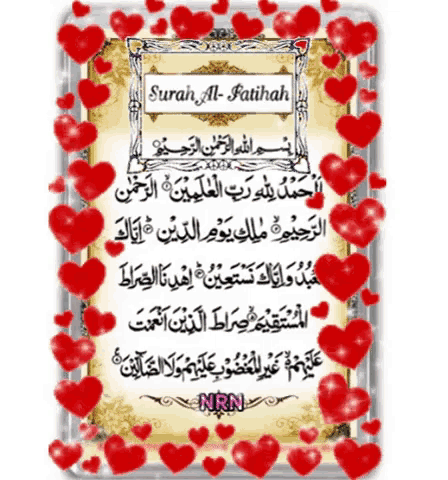 Surah Al- Fatihah
بِسْمِ اللهِ الرَّحْمٰنِ الرَّحِيْمِ
اَلْحَمْدُ لِلّٰهِ رَبِّ الْعٰلَمِيْنَ ۙ الرَّحْمٰنِ
الرَّحِيْمِ ۙ مٰلِكِ يَوْمِ الدِّيْنِ ؕ اِيَّاكَ
نَعْبُدُ وَاِيَّاكَ نَسْتَعِيْنُ ؕ اِهْدِنَا الصِّرَاطَ
الْمُسْتَقِيْمَ ۙ صِرَاطَ الَّذِيْنَ اَنْعَمْتَ
عَلَيْهِمْ ۙ غَيْرِ الْمَغْضُوْبِ عَلَيْهِمْ وَلَا الضَّآلِّيْنَ
NRN